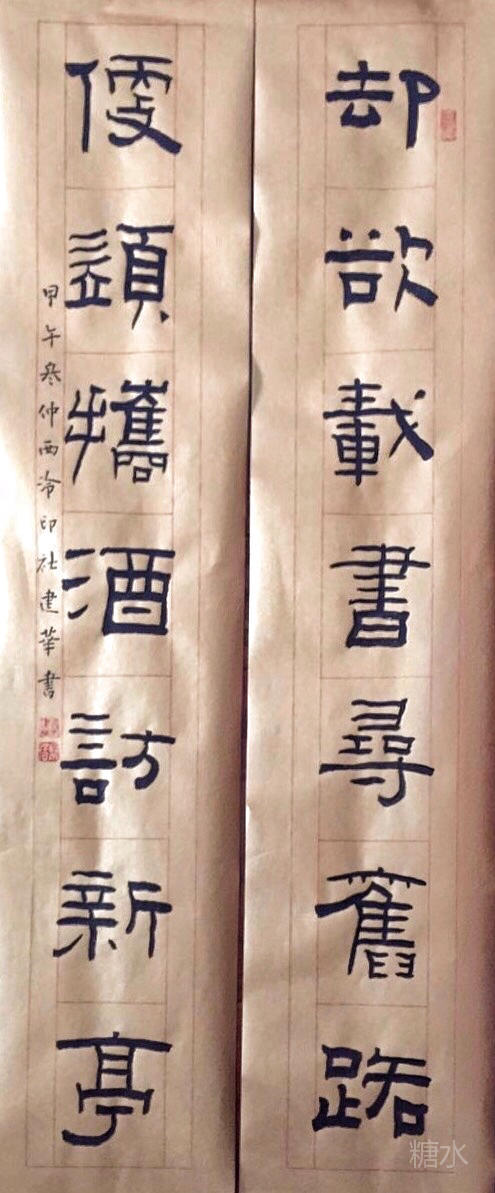 却欲載書尋舊路
便須攜酒訪新亭
甲午冬仲西泠印社建華書
糖水